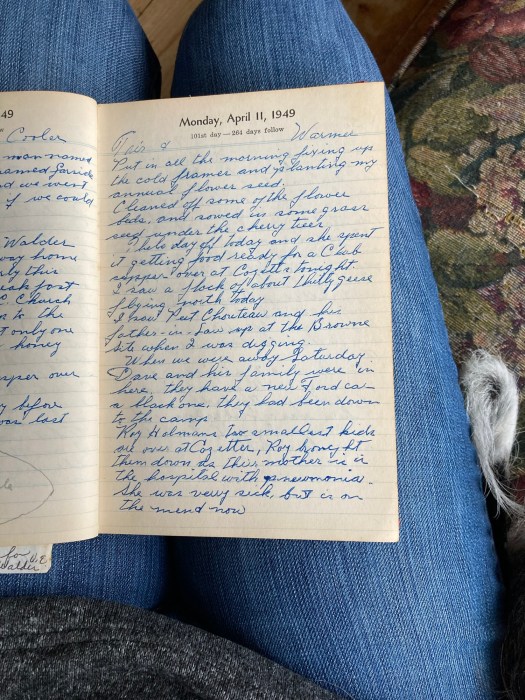 49
Cooler
man named
named Faride
ad we went
if we could
Walder
way home
ly this
eak fast
C. Church
is the
t only one
honey
sper over
y before
was last
for
Walder V.E.
Monday, April 11, 1949
101st day—264 days follow
Warmer
Put in all the morning fixing up
the cold frames and planting my
annual flower seed.
Cleaned off some of the flower
beds, and sowed in some grass
seed under the cherry trees
day off today and she spent
it getting food ready for a Club
supper over at Cozetts tonight.
I saw a flock of about thirty geese
flying north today
I saw Pete Chouteau and his
father-in-law up at the Browne
site when I was digging.
When we were away Saturday
Dave and his family were in
here, they have a new Ford car
a black one. they had been down
to the camp
Roy Holmans two smallest kids
are over at Cozettes, Roy brought
them down as their mother is in
the hospital with pneumonia.
She was very sick but is on
the mend now